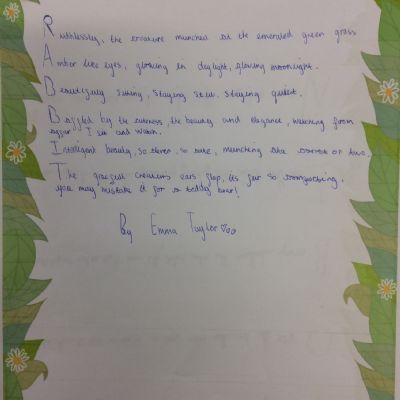 Ruthlessly, the creature munched at the emerald green grass
Amber like eyes, glowing in daylight, glowing moonlight.
Beautifully sitting, staying still. Staying quiet.
by the cuteness, the beauty and elegance, watching from
afar I sit and watch.
Intelligent beauty, so clever, so cute, munching like carrot or two.
The graceful creatures ears flop, its fur so comforting,
you may mistake it for a teddy bear!
By Emma Taylor